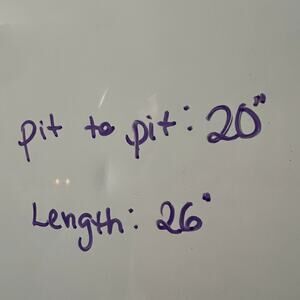 pit to pit: 20"
Length: 26"